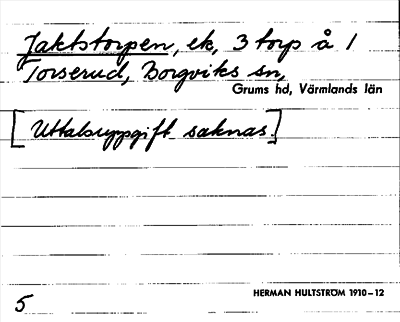 Jaktstorpen, ek, 3 torp å 1
Torserud, Borgviks sn,
Grums hd, Värmlands län
[Uttalsuppgift saknas.]
HERMAN HULTSTRÖM 1910-12
5